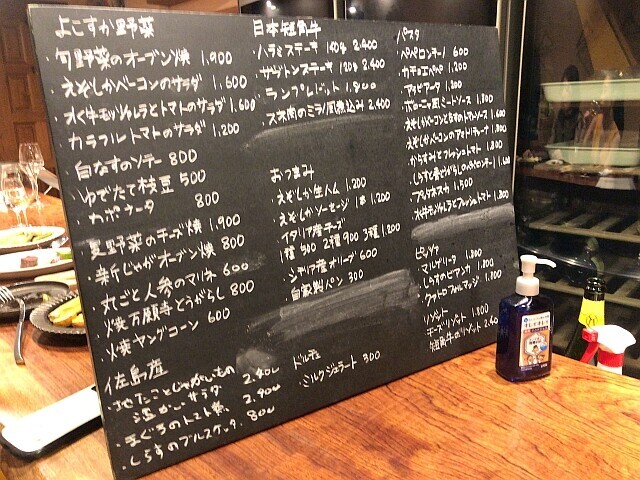 よこすか野菜
・旬野菜のオーブン焼 1,900
・えぞしかベーコンのサラダ 1,600
・水牛モッツァレラとトマトのサラダ 1,600
・カラフルトマトのサラダ 1,200
・白なすのソテー 800
・ゆでたて枝豆 500
・カポナータ 800
・夏野菜のチーズ焼 1,900
・新じゃがオーブン焼 800
・丸ごと人参のマリネ 600
・焼万願寺とうがらし 800
・焼ヤングコーン 600
佐島産
・地だことじゃがいもの
温かいサラダ 2,400
・まぐろのトマト煮 2,900
・しらすのブルスケッタ 800
日本短角牛
・ハラミステーキ 2,400
・サガトンステーキ 120g 2,400
・ランプレビット 1,800
・スネ肉のミラノ風煮込み 2,400
おつまみ
・えぞしか生ハム 1,200
・えぞしかソーセージ 1本 1,200
・イタリア産チーズ
1種 500 2種 900 3種 1,200
・シチリア産オリーブ 600
・自家製パン 300
ドルチェ
・ミルクジェラート 300
パスタ
・ペペロンチーノ 600
・カチョエペペ 1,200
・アラビアータ 1,200
・ボローニャ風ミートソース 1,800
・えぞしかベーコンとトマトソース 1,600
・えぞしかベーコンのアマトリチャーナ 1,800
・からすみとフレッシュトマト 1,800
・しらすと青とうがらしのペペロンチーノ 1,600
・プッタネスカ 1,500
・水牛モッツァレラとフレッシュトマト 1,800
ピッツァ
・マルゲリータ 1,800
・しらすのビアンカ 1,800
・クワトロフォルマッジ 1,800
リゾット
・チーズリゾット 1,800
・短角牛のリゾット 2,600